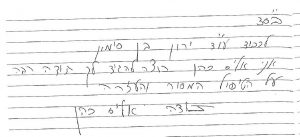 בס"ד
לכבוד עו"ד ירון בן סימון
אני אליס כהן רוצה להגיד לך תודה רבה
על הטיפול המסור והעזרה
בתודה אליס כהן